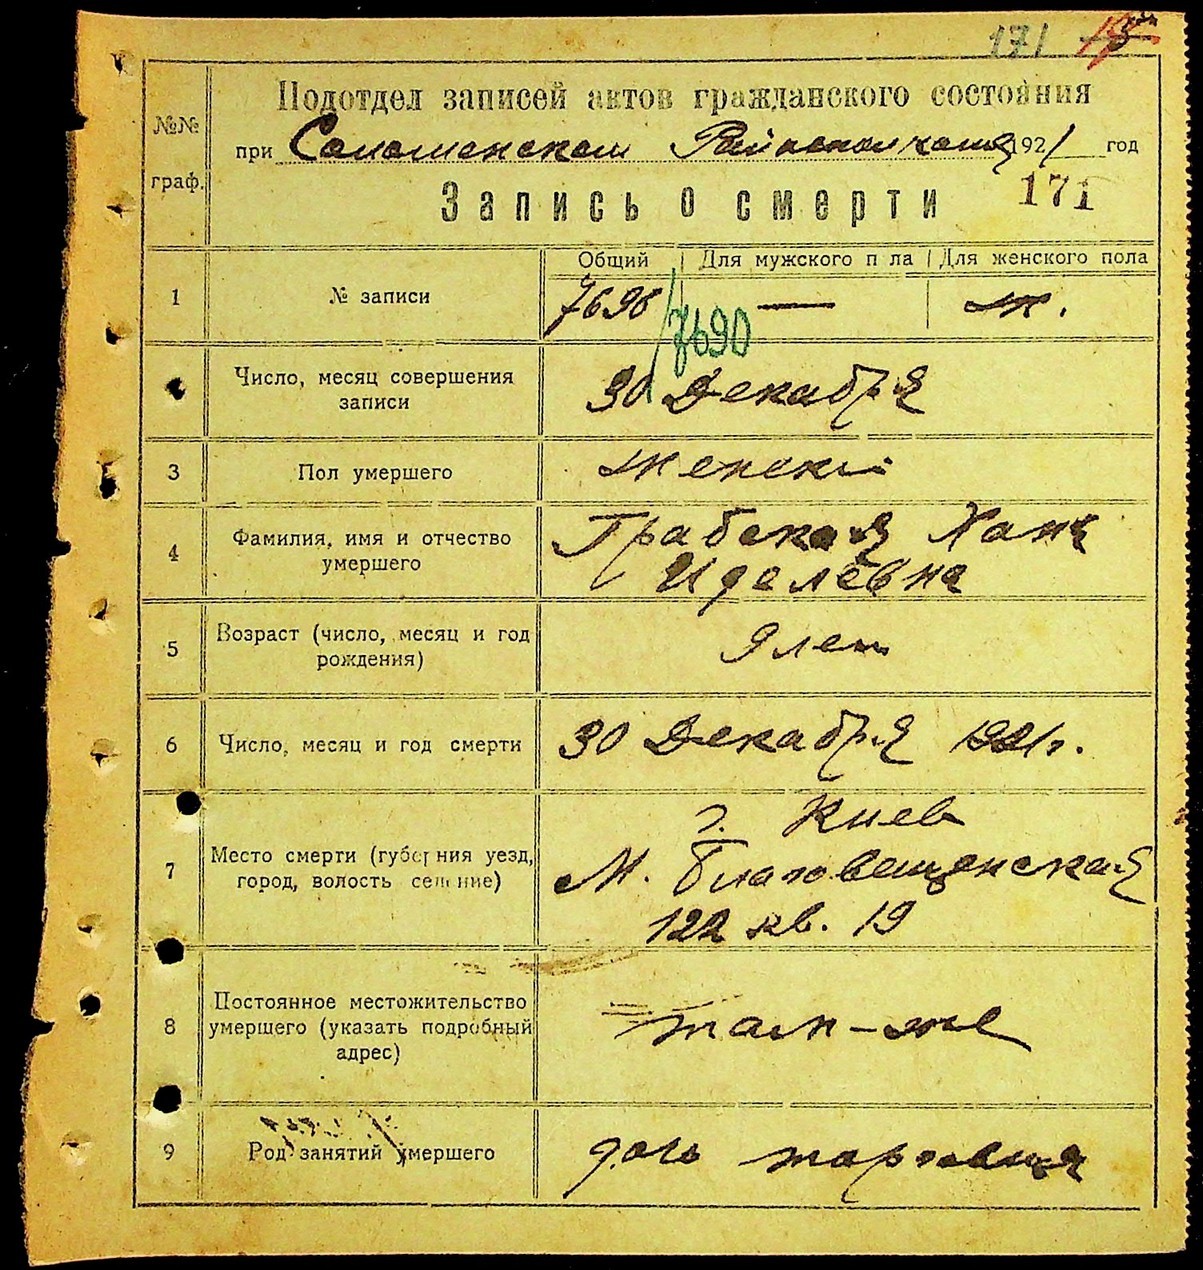 171
Подотдел записей актов гражданского состояния
№№ граф.
при Соломенском Райисполкоме 1921 год
Запись о смерти 171
Общий Для мужского п ла Для женского пола
1 № записи 7696 — ж.
7690
Число, месяц совершения записи 30 Декабря
3 Пол умершего женский
4 Фамилия, имя и отчество умершего Грабская Хана
Иделевна
5 Возраст (число, месяц и год рождения) 9 лет
6 Число, месяц и год смерти 30 Декабря 1921г.
г. Киев
7 Место смерти (губерния уезд, город, волость селение) М. Благовещенская
122 кв. 19
8 Постоянное местожительство умершего (указать подробный адрес) там-же
9 Род занятий умершего дочь торговца